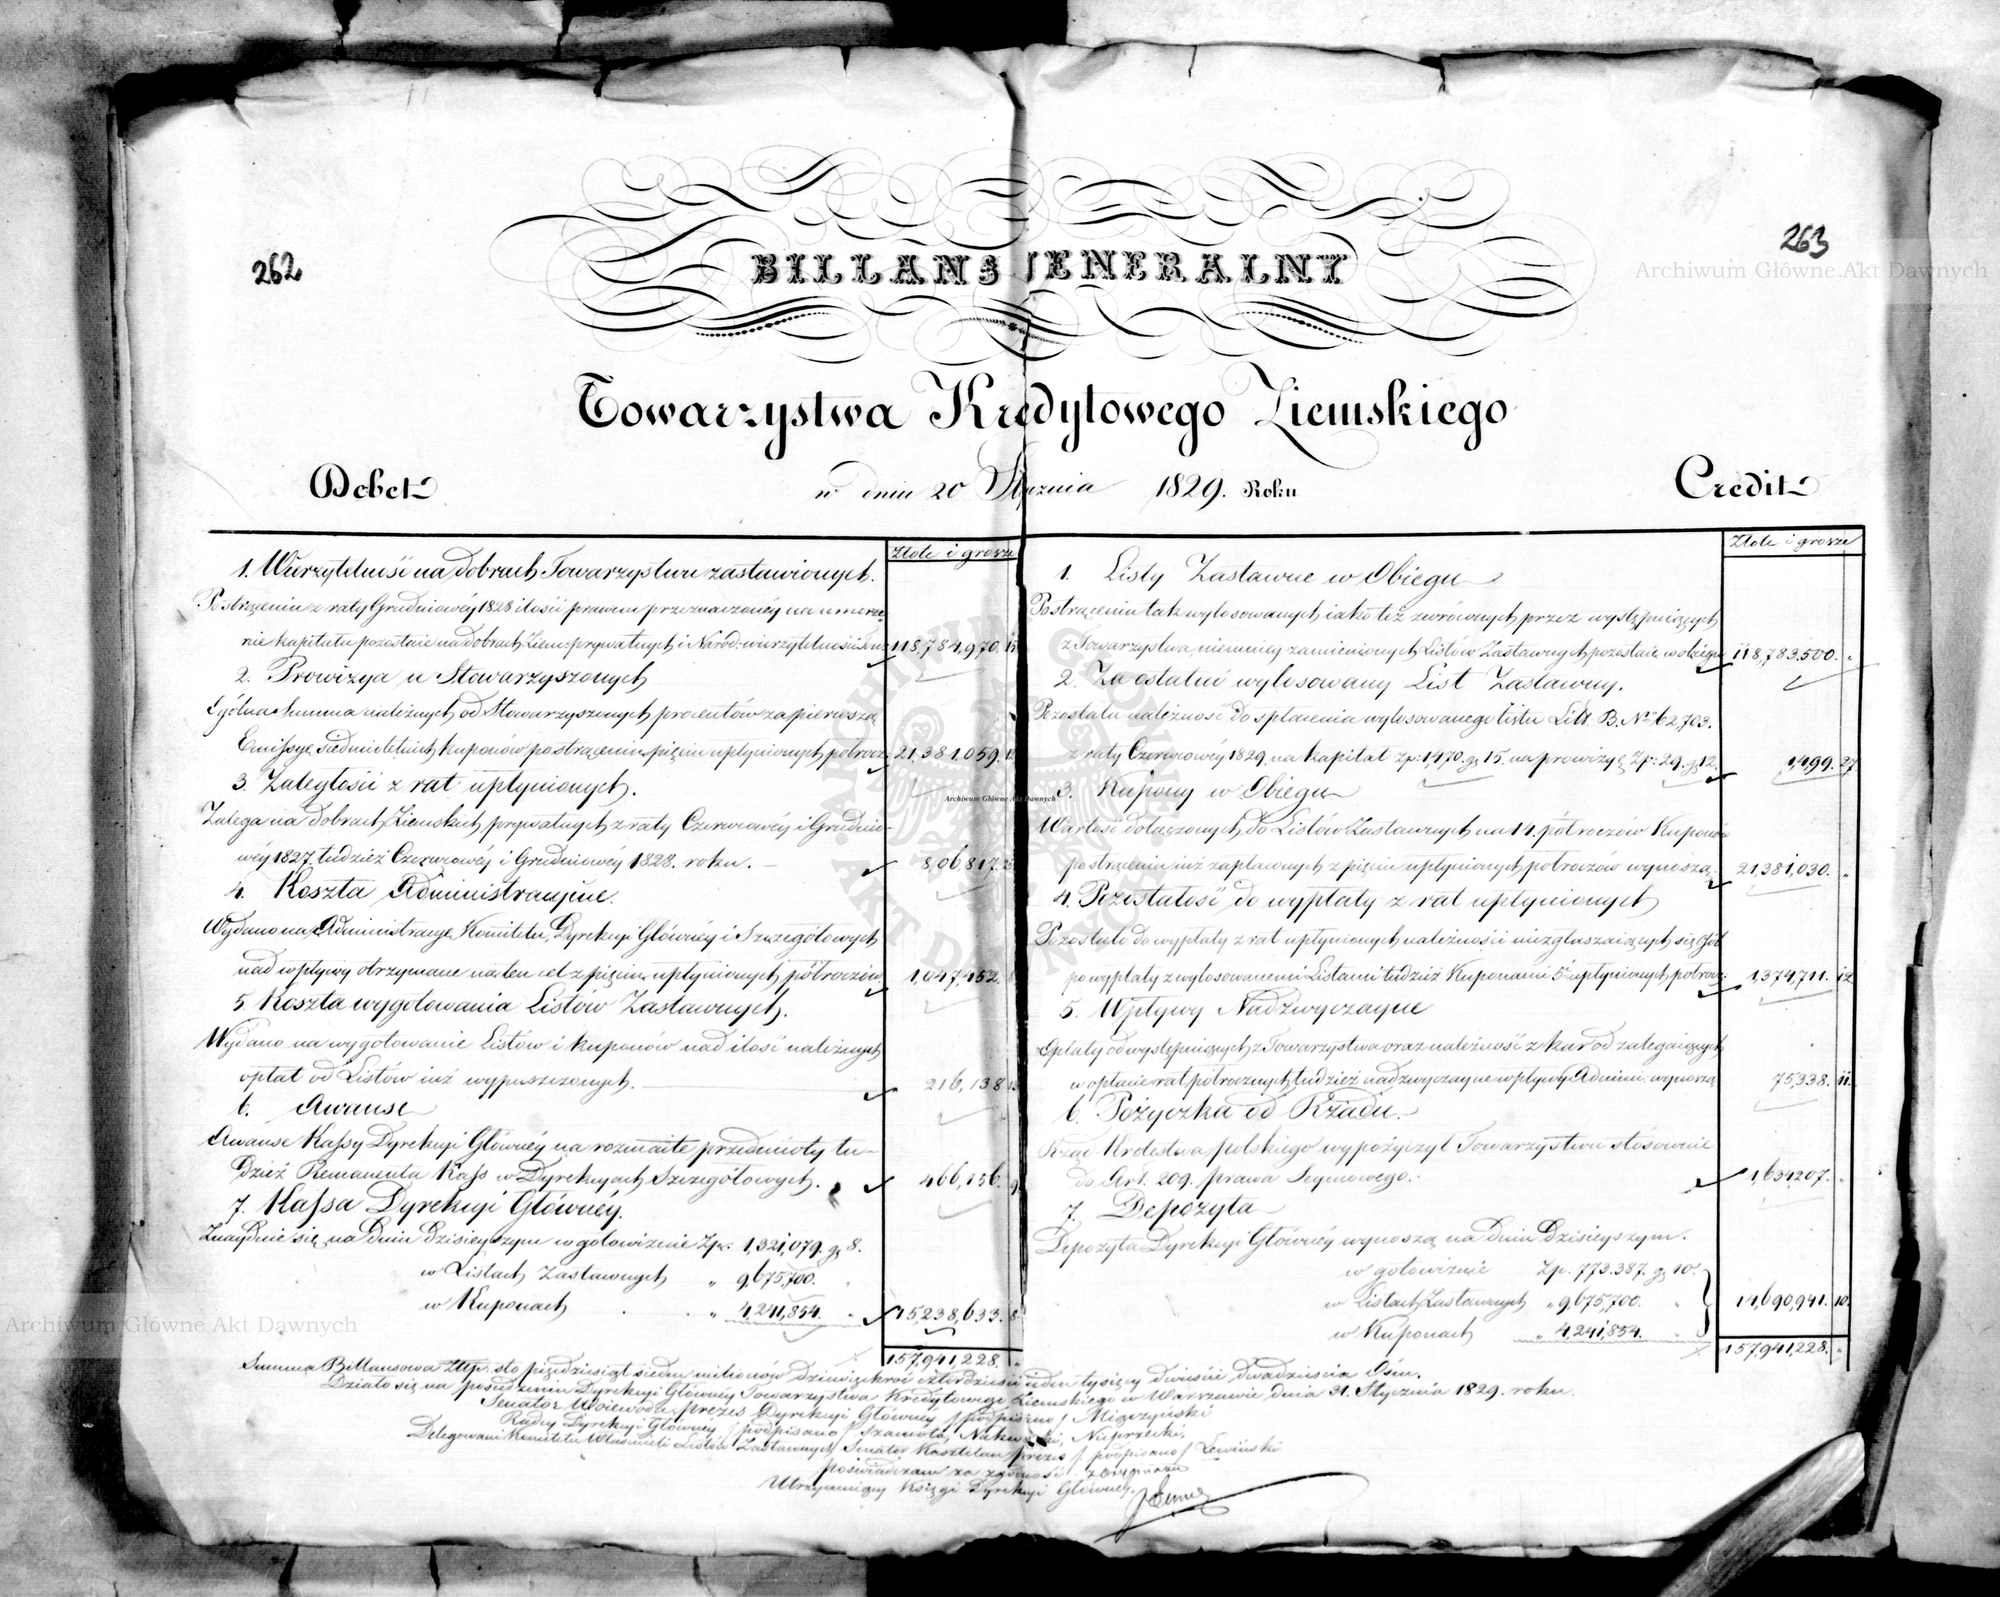 262
263
BILLANS JENERALNY
Towarzystwa Kredytowego Ziemskiego
Debet
w dniu 20 Stycznia 1829. Roku
Credit
Złote i grosze
1. Wierzytelność na dobrach Towarzystwu zastawionych.
Po strąceniu z raty Grudniowéy 1828 ilości prawem przeznaczonéy na umorze-
nie kapitału pozostaie na dobrach Ziem: prywatnych i Narod: wierzytelności Tow: 118,784,970.
2. Prowizya u Stowarzyszonych
Ogólna Summa należnych od Stowarzyszonych procentów za pierwszą
Emissyę siedmioletnich kuponów po strąceniu pięciu upłynionych półrocz: 21,381,059. 12
3. Zaległości z rat upłynionych.
Zalega na dobrach Ziemskich prywatnych z raty Czerwcowéy i Grudnio-
wéy 1827. tudzież Czerwcowéy i Grudniowéy 1828. roku. 806,817.
4. Koszta Administracyjne.
Wydano na Administracyę Komitetu, Dyrekcyi Głównéy i Szczegółowych
nad wpływy otrzymane na ten cel z pięciu upłynionych półroczów. 1,047,452.
5. Koszta wygotowania Listów Zastawnych.
Wydano na wygotowanie Listów i kuponów nad ilość należnych
opłat od Listów iuż wypuszczonych. 216,138
6. Awanse
Awanse Kassy Dyrekcyi Głównéy na rozmaite przedmioty tu-
dzież Remanenta Kass w Dyrekcyach Szczegółowych. 466,156. 9
7. Kassa Dyrekcyi Głównéy.
Znayduie się na dniu dzisieyszym w gotowiznie Zp: 1,321,079. g 8.
w Listach Zastawnych „ 9,675,700. „
w Kuponach „ 4,241,854. „ 15,238,633. 8
157,941,228. „
Złote i grosze
1. Listy Zastawne w Obiegu
Po strąceniu tak wylosowanych iako też zwróconych przez występuiących
z Towarzystwa niemniey zamienionych Listów Zastawnych pozostaie w obiegu 118,783,500. „
2. Za ostatni wylosowany List Zastawny.
Pozostała należność do spłacenia wylosowanego listu Litt. B. No 62,703.
z raty Czerwcowéy 1829. na kapitał zp: 1,470. g 15. na prowizyę Zp: 29. g 12. 1,499. 27
3. Kupony w Obiegu
Wartość dołączonych do Listów Zastawnych na 14. półroczów Kuponów
po strąceniu iuż zapłaconych z pięciu upłynionych półroczów wynoszą 21,381,030. „
4. Pozostałość do wypłaty z rat upłynionych
Pozostało do wypłaty z rat upłynionych należności niezgłaszaiących się osób
po wypłaty z wylosowanemi Listami tudzież Kuponami 5 upłynionych półrocz: 1,374,711. 12
5. Wpływy Nadzwyczayne
Opłaty od występuiących z Towarzystwa oraz należność z kar od zalegaiących
w opłacie rat półrocznych tudzież nadzwyczayne wpływy Admini: wynoszą 75,338. 11.
6. Pożyczka od Rządu.
Rząd Królestwa polskiego wypożyczył Towarzystwu stósownie
do Art. 209. prawa Seymowego. 1,634,207. „
7. Depozyta
Depozyta Dyrekcyi Głównéy wynoszą na dniu dzisieyszym.
w gotowiznie Zp. 773,387. g 10.
w Listach Zastawnych „ 9,675,700. „ 14,690,941. 10.
w Kuponach „ 4,241,854. „
157,941,228. „
Summa Billansowa Złtp. sto pięćdziesiąt siedm milionów dziewięćkroć czterdzieści ieden tysięcy dwieście dwadzieścia Ośm.
Działo się na posiedzeniu Dyrekcyi Głównéy Towarzystwa Kredytowego Ziemskiego w Warszawie dnia 31. Stycznia 1829. roku.
Senator Woiewoda prezes Dyrekcyi Głównéy /podpisano/ Miączyński
Radcy Dyrekcyi Głównéy /podpisano/ Szamota, Nakwaski, Nieprzecki,
Delegowani Komitetu Właścicieli Listów Zastawnych Senator Kasztelan prezes /podpisano/ Lewiński
poświadczam za zgodność z Oryginałem
Utrzymuiący Księgi Dyrekcyi Głównéy.
Archiwum Główne Akt Dawnych
Archiwum Główne Akt Dawnych
Archiwum Główne Akt Dawnych